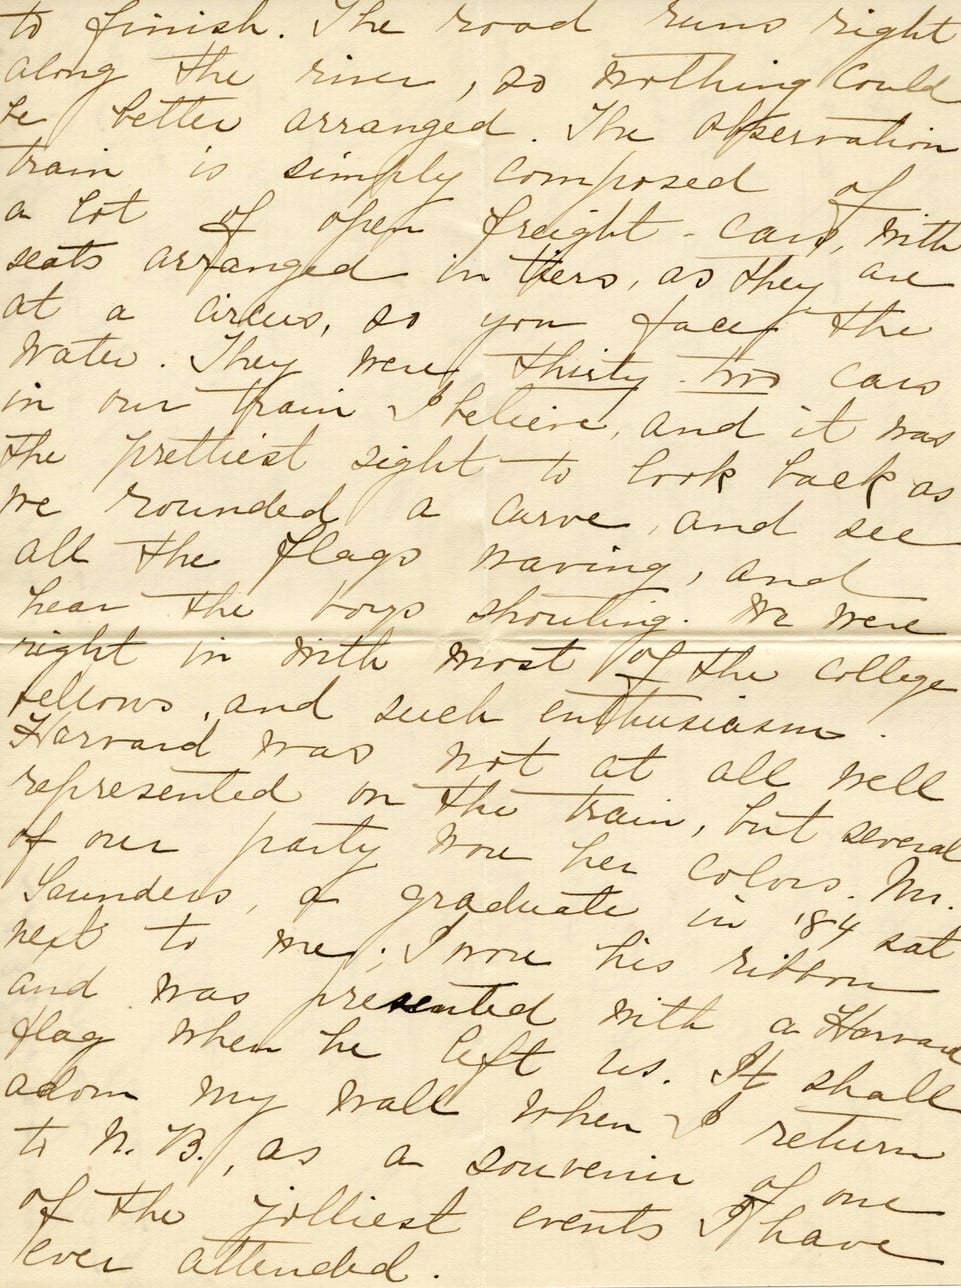 to finish. The road runs right
along the river, so nothing could
be better arranged. The observation
train is simply composed of
a lot of open freight-cars, with
seats arranged in tiers, as they are
at a circus, so you face the
water. They were thirty-two cars
in our train I believe, and it was
the prettiest sight to look back as
we rounded a curve, and see
all the flags waving, and
hear the boys shouting. We were
right in with most of the college
fellows, and such enthusiasm.
Harvard was not at all well
represented on the train, but several
of our party wore her colors. Mr.
Saunders, a graduate in '84 sat
next to me; I wore his ribbon
and was presented with a Harvard
flag when he left us. It shall
adorn my wall when I return
to N.B., as a souvenir of one
of the jolliest events I have
ever attended.